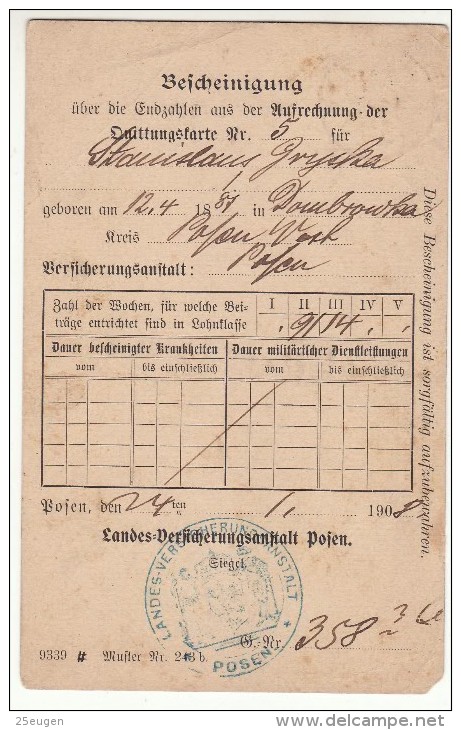 Bescheinigung
über die Endzahlen aus der Aufrechnung der
Quittungskarte Nr. 5 für
Stanislaus
geboren am 12.4 18 81 in Dombrowka
Kreis Posen West
Versicherungsanstalt: Posen
Zahl der Wochen, für welche Bei-
träge entrichtet sind in Lohnklasse
I II III IV V
9 14
Dauer bescheinigter Krankheiten Dauer militärischer Dienstleistungen
vom bis einschließlich vom bis einschließlich
Posen, den 24ten 1. 1908
Landes-Versicherungsanstalt Posen.
Siegel.
LANDES-VERSICHERUNGSANSTALT
POSEN
G.-Nr. 358
9339 # Muster Nr. 243 b.
Diese Bescheinigung ist sorgfältig aufzubewahren.
25eugen
delcampe.net